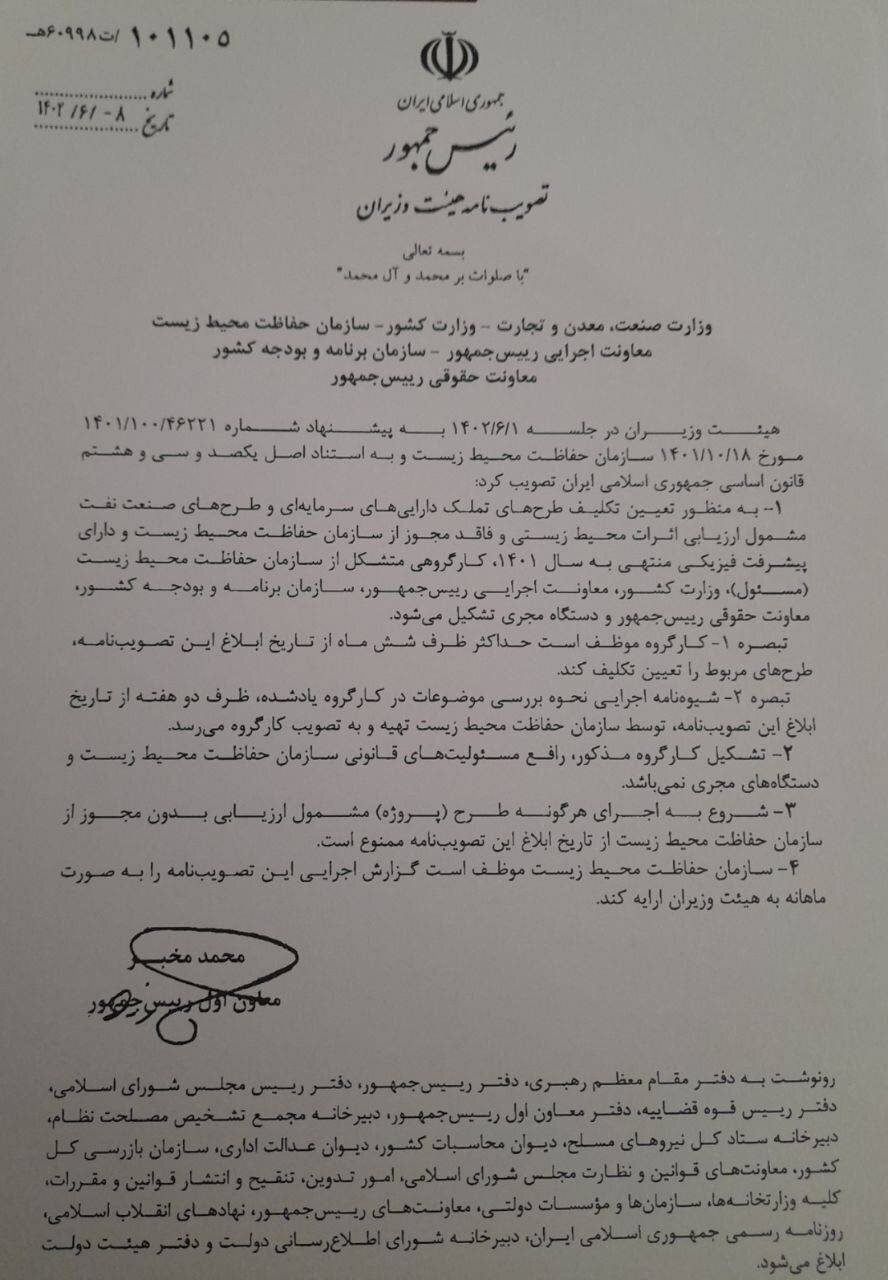 ۱۰۱۱۰۵ /ت۶۰۹۹۸هـ
شماره
تاریخ ۱۴۰۲ /۶/ -۸
جمهوری اسلامی ایران
رئیس جمهور
تصویب نامه هیئت وزیران
بسمه تعالی
"با صلوات بر محمد و آل محمد"
وزارت صنعت، معدن و تجارت - وزارت کشور - سازمان حفاظت محیط زیست
معاونت اجرایی رییس‌جمهور - سازمان برنامه و بودجه کشور
معاونت حقوقی رییس‌جمهور
هیئت وزیران در جلسه ۱۴۰۲/۶/۱ به پیشنهاد شماره ۱۴۰۱/۱۰۰/۴۶۲۲۱
مورخ ۱۴۰۱/۱۰/۱۸ سازمان حفاظت محیط زیست و به استناد اصل یکصد و سی و هشتم
قانون اساسی جمهوری اسلامی ایران تصویب کرد:
۱- به منظور تعیین تکلیف طرح‌های تملک دارایی‌های سرمایه‌ای و طرح‌های صنعت نفت
مشمول ارزیابی اثرات محیط زیستی و فاقد مجوز از سازمان حفاظت محیط زیست و دارای
پیشرفت فیزیکی منتهی به سال ۱۴۰۱، کارگروهی متشکل از سازمان حفاظت محیط زیست
(مسئول)، وزارت کشور، معاونت اجرایی رییس‌جمهور، سازمان برنامه و بودجه کشور،
معاونت حقوقی رییس‌جمهور و دستگاه مجری تشکیل می‌شود.
تبصره ۱- کارگروه موظف است حداکثر ظرف شش ماه از تاریخ ابلاغ این تصویب‌نامه،
طرح‌های مربوط را تعیین تکلیف کند.
تبصره ۲- شیوه‌نامه اجرایی نحوه بررسی موضوعات در کارگروه یادشده، ظرف دو هفته از تاریخ
ابلاغ این تصویب‌نامه، توسط سازمان حفاظت محیط زیست تهیه و به تصویب کارگروه می‌رسد.
۲- تشکیل کارگروه مذکور، رافع مسئولیت‌های قانونی سازمان حفاظت محیط زیست و
دستگاه‌های مجری نمی‌باشد.
۳- شروع به اجرای هرگونه طرح (پروژه) مشمول ارزیابی بدون مجوز از
سازمان حفاظت محیط زیست از تاریخ ابلاغ این تصویب‌نامه ممنوع است.
۴- سازمان حفاظت محیط زیست موظف است گزارش اجرایی این تصویب‌نامه را به صورت
ماهانه به هیئت وزیران ارایه کند.
محمد مخبر
معاون اول رییس‌جمهور
رونوشت به دفتر مقام معظم رهبری، دفتر رییس‌جمهور، دفتر رییس مجلس شورای اسلامی،
دفتر رییس قوه قضاییه، دفتر معاون اول رییس‌جمهور، دبیرخانه مجمع تشخیص مصلحت نظام،
دبیرخانه ستاد کل نیروهای مسلح، دیوان محاسبات کشور، دیوان عدالت اداری، سازمان بازرسی کل
کشور، معاونت‌های قوانین و نظارت مجلس شورای اسلامی، امور تدوین، تنقیح و انتشار قوانین و مقررات،
کلیه وزارتخانه‌ها، سازمان‌ها و مؤسسات دولتی، معاونت‌های رییس‌جمهور، نهادهای انقلاب اسلامی،
روزنامه رسمی جمهوری اسلامی ایران، دبیرخانه شورای اطلاع‌رسانی دولت و دفتر هیئت دولت
ابلاغ می‌شود.